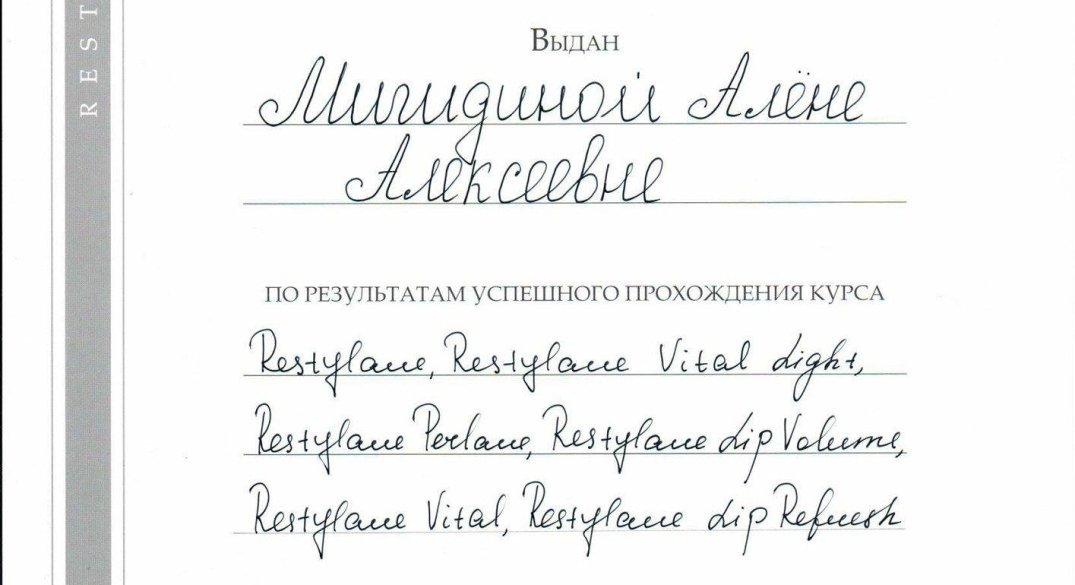 REST
Выдан
Мигидиной Алёне
Алексеевне
ПО РЕЗУЛЬТАТАМ УСПЕШНОГО ПРОХОЖДЕНИЯ КУРСА
Restylane, Restylane Vital Light,
Restylane Perlane, Restylane Lip Volume,
Restylane Vital, Restylane Lip Refresh